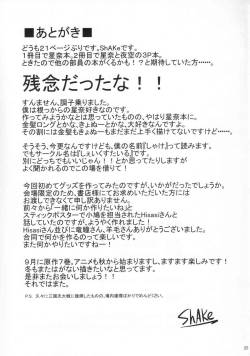 ■あとがき■
どうも21ページぶりです。ShAKeです。
1冊目で星奈本、2冊目で星奈と夜空の3P本。
ときたので他の部員の本がくるかも！？と期待していた方……。
残念だったな！！
すんません、調子乗りました。
僕は根っからの星奈好きなのです。
作ってみようかなとは思っていたものの、やはり星奈本に。
金髪ロングとかきょぬーとか、大好きなんですよ。
その割にはきょぬーもまだまだ上手く描けてないですけど……。
そうそう、今更なんですけど、僕の名前『しゃけ』って読みます。
でもサークル名は『しぇいくすたいる』です。
別にどっちでもいいじゃん！！とか思ってたりしますが
よく聞かれるのでこの場を借りて！
今回初めてグッズを作ってみたのが、いかがだったでしょうか。
会場限定のため、書店様にてお求めいただいた方には
お渡しできなくて申し訳ありません。
前々から「一緒に何か作りたいね」と
スティックポスターで小鳩を担当されたHisasiさんと
話していたので、今回作ることができてよかったです。
Hisasiさん並びに竜瞳さん、羊毛さんありがとうございました。
合同で作るのって楽しいですね。
また何かやりたいですねー。
9月に原作7巻、アニメも秋から始まりますし、ますます楽しみです！
冬もまたはがない描きたいなと思ってます。
是非またお会いしましょう！
それではっ！
ShAKe